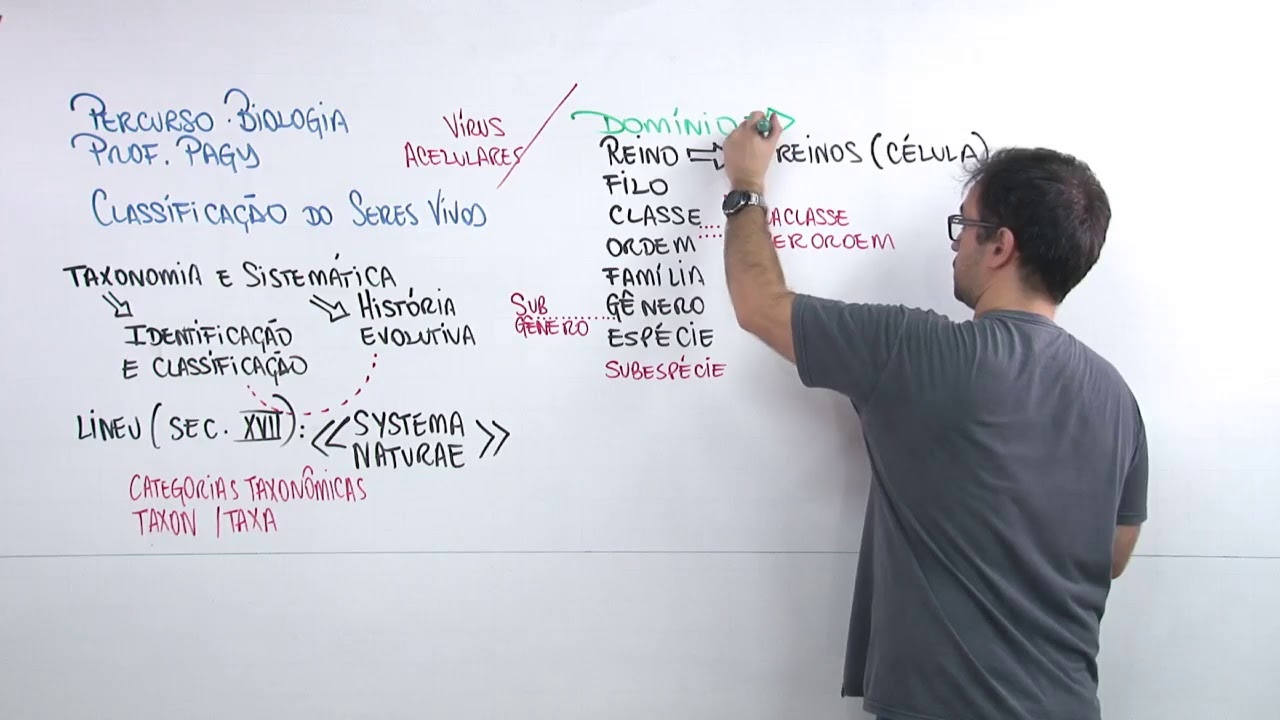 PERCURSO BIOLOGIA
PROF. PAGY
CLASSIFICAÇÃO DO SERES VIVOS
TAXONOMIA E SISTEMÁTICA
IDENTIFICAÇÃO
E CLASSIFICAÇÃO
HISTÓRIA
EVOLUTIVA
LINEU (SEC. XVII): << SYSTEMA
NATURAE >>
CATEGORIAS TAXONÔMICAS
TAXON / TAXA
VÍRUS
ACELULARES
DOMÍNIO
REINO ⇒ REINOS (CÉLULA)
FILO
CLASSE
ORDEM
FAMÍLIA
GÊNERO
ESPÉCIE
SUBESPÉCIE
SUB
GÊNERO